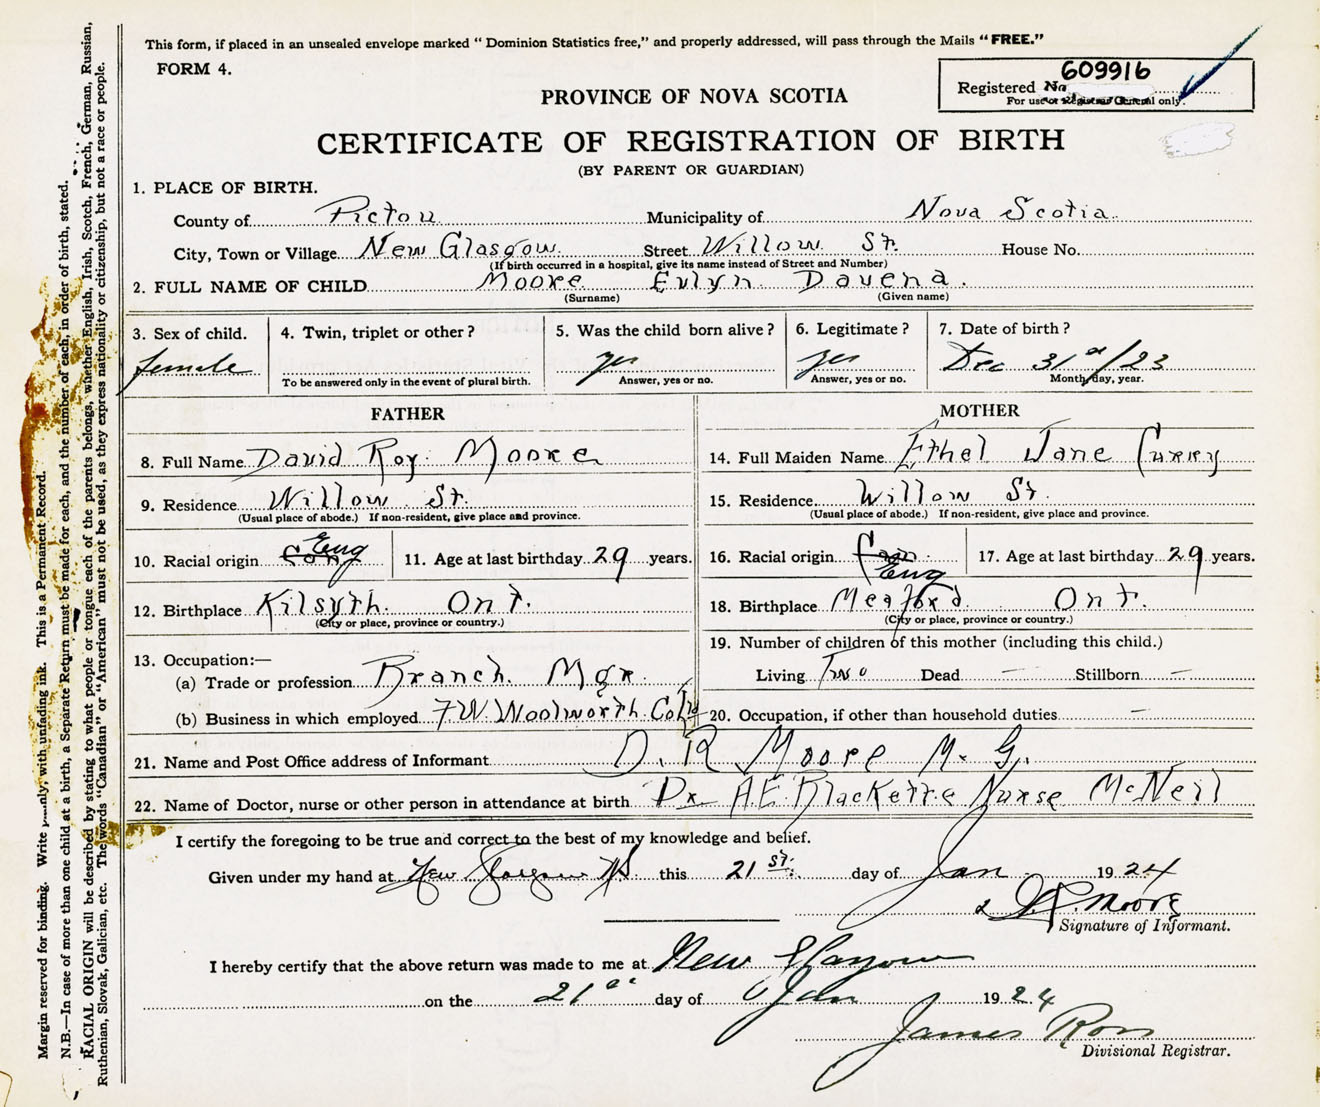 This form, if placed in an unsealed envelope marked “ Dominion Statistics free,” and properly addressed, will pass through the Mails “ FREE.”
FORM 4.
609916
Registered No
For use of Registrar General only.
PROVINCE OF NOVA SCOTIA
CERTIFICATE OF REGISTRATION OF BIRTH
(BY PARENT OR GUARDIAN)
1. PLACE OF BIRTH.
County of Pictou Municipality of Nova Scotia
City, Town or Village New Glasgow Street Willow St. House No.
(If birth occurred in a hospital, give its name instead of Street and Number)
2. FULL NAME OF CHILD Moore Evlyn Davena.
(Surname) (Given name)
3. Sex of child. 4. Twin, triplet or other ? 5. Was the child born alive ? 6. Legitimate ? 7. Date of birth ?
female yes yes Dec 31st/23
To be answered only in the event of plural birth. Answer, yes or no. Answer, yes or no. Month, day, year.
FATHER MOTHER
8. Full Name David Roy Moore 14. Full Maiden Name Ethel Jane Curry
9. Residence Willow St. 15. Residence Willow St.
(Usual place of abode.) If non-resident, give place and province. (Usual place of abode.) If non-resident, give place and province.
10. Racial origin Eng 11. Age at last birthday 29 years. 16. Racial origin Eng 17. Age at last birthday 29 years.
12. Birthplace Kilsyth. Ont. 18. Birthplace Meaford Ont.
(City or place, province or country.) (City or place, province or country.)
13. Occupation:— 19. Number of children of this mother (including this child.)
(a) Trade or profession Branch. Mgr. Living Two Dead — Stillborn —
(b) Business in which employed F.W. Woolworth Co Ltd 20. Occupation, if other than household duties —
21. Name and Post Office address of Informant D. R Moore N. G.
22. Name of Doctor, nurse or other person in attendance at birth Dr A.E. Blackette Nurse McNeil
I certify the foregoing to be true and correct to the best of my knowledge and belief.
Given under my hand at New Glasgow NS. this 21st. day of Jan 1924
D.R. Moore
Signature of Informant.
I hereby certify that the above return was made to me at New Glasgow
on the 21st day of Jan 1924
James Ross
Divisional Registrar.
Margin reserved for binding. Write plainly; with unfading ink. This is a Permanent Record.
N.B.—In case of more than one child at a birth, a Separate Return must be made for each, and the number of each, in order of birth, stated.
RACIAL ORIGIN will be described by stating to what people or tongue each of the parents belongs, whether English, Irish, Scotch, French, German, Russian,
Ruthenian, Slovak, Galician, etc. The words “Canadian” or “American” must not be used, as they express nationality or citizenship, but not a race or people.